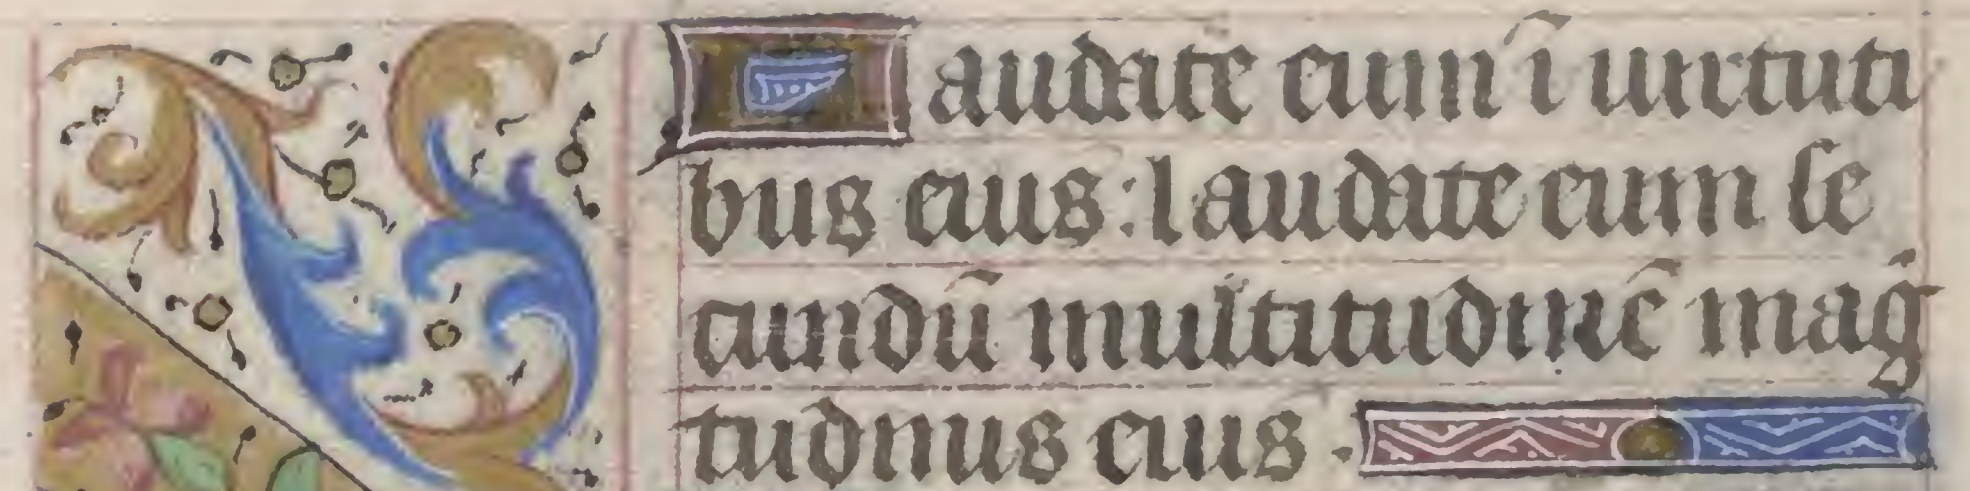 Laudate eum ī uirtuti
bus eius: laudate eum se
cundū multitudinē mag
tudinis eius.